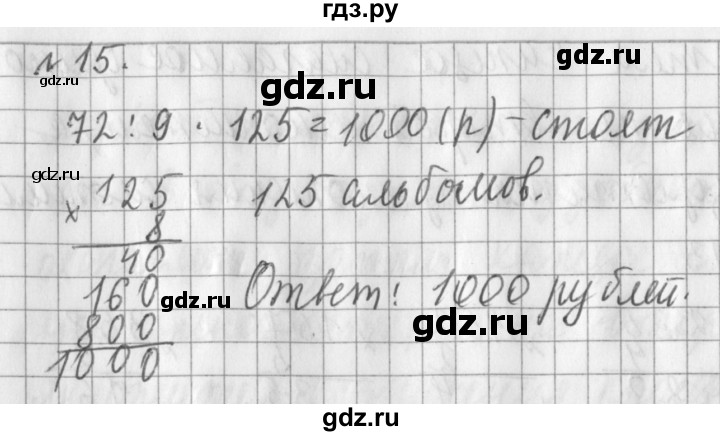 гдз.ру
№ 15.
gdz.ru
72 : 9 · 125 = 1000 (р) - стоят
gdz.ru
× 125 125 альбомов.
8
40
160 gdz.ru Ответ: 1000 рублей.
800 gdz.ru
1000
гдз.ру
gdz.ru